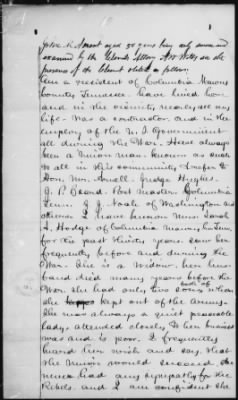 John A. Amont aged 50 years being duly sworn and
examined by the Claimants Attorney A W Wills on the
premises of the Claimant states as follows:
Am a resident of Columbia Maury
County Tennessee. have lived here
and in the vicinity nearly all my
life. Was a contractor and in the
employ of the U. S. Government
all during the War. Have always
been a Union man. Known as such
to all in this community. I refer to
Hon. Mr. Arnell Judge Hughes.
J. P. Beard. Post Master. Columbia
Tenn. J. J. Noale of Washington and
others. I have known Mrs. Sarah
A. Hodge of Columbia Maury Co. Tenn.
for the past thirty years. Saw her
frequently before and during the
War. She is a Widow. her hus
band died many years before the
War. She had only two sons both of whom
she kept out of the Army.
She was always a quiet peaceable
lady. attended closely to her business
was and is poor. I frequently
heard her wish and say that
the Union would succeed. She
never had any sympathy for the
Rebels. and I am confident she